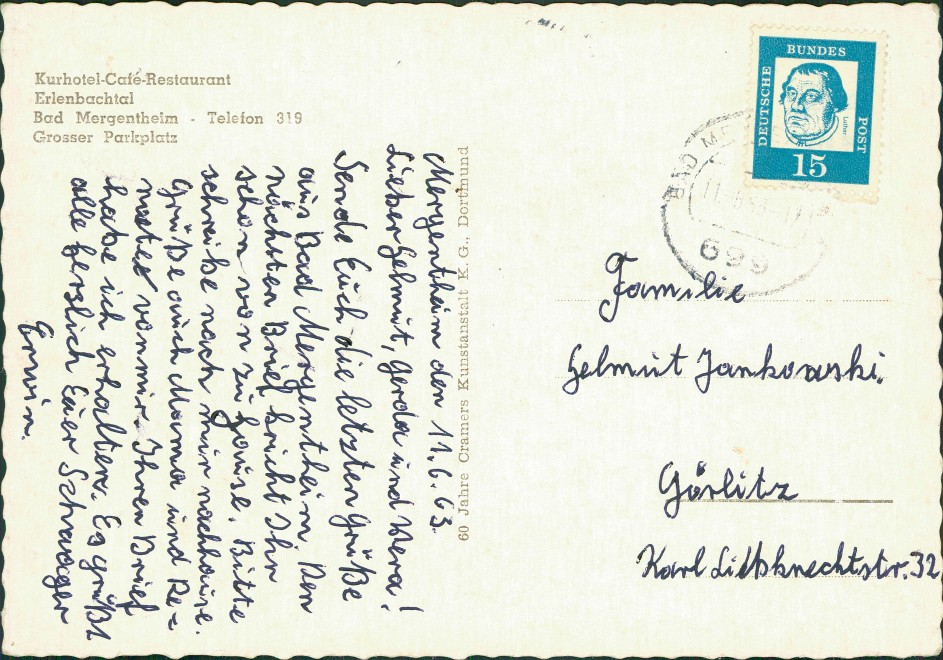 Kurhotel-Café-Restaurant
Erlenbachtal
Bad Mergentheim - Telefon 319
Grosser Parkplatz
Mergentheim den 11.6.63.
Lieber Helmut, Gerda und Wera!
Sende Euch die letzten Grüße
aus Bad Mergentheim. Den
nächsten Brief kricht Ihr
schon von zu hause. Bitte
schreibe nach mir nachhause.
Grüße auch Mama und Re-
nate von mir. Ihren Brief
habe ich erhalten. Es grüßt
alle herzlich Euer Schwager
Erwin.
60 Jahre Cramers Kunstanstalt K. G., Dortmund
DEUTSCHE BUNDES POST
Luther
15
BAD ME
699
Familie
Helmut Jankowski.
Görlitz
Karl Liebknechtstr. 32